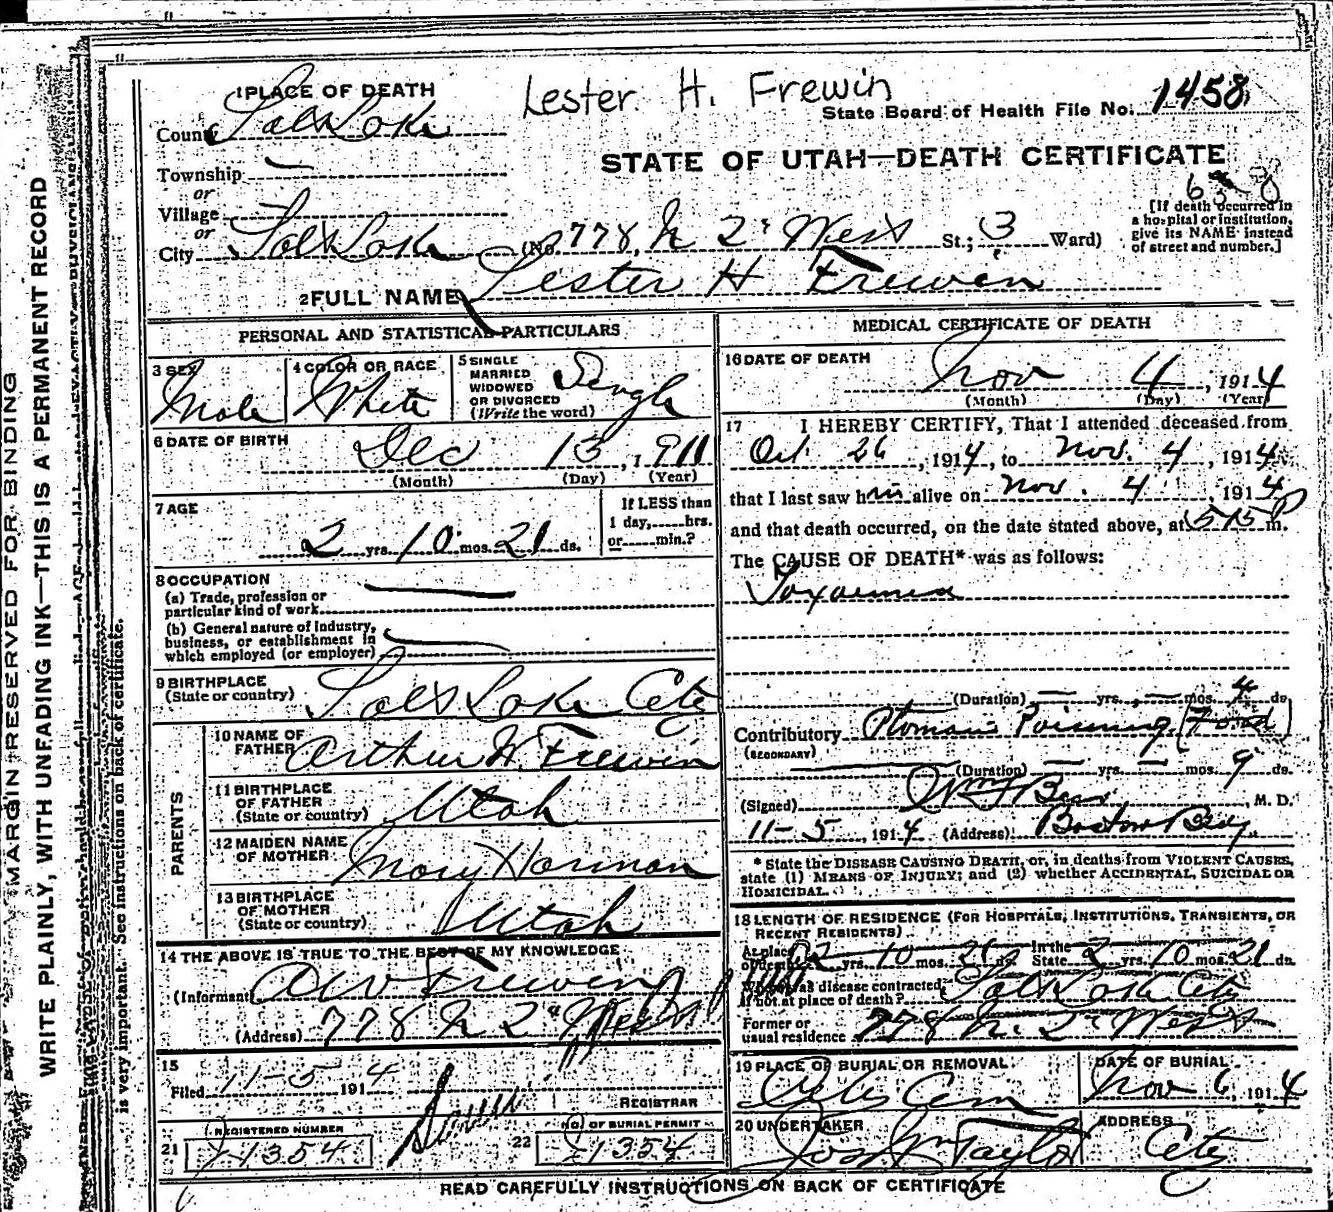 1 PLACE OF DEATH
Lester H. Frewin
State Board of Health File No. 1458
County Salt Lake
STATE OF UTAH—DEATH CERTIFICATE
Township —
or
Village
or
City Salt Lake (No. 778 N 2d West St.; 3 Ward)
[If death occurred in
a hospital or institution,
give its NAME instead
of street and number.]
2 FULL NAME Lester H Frewin
PERSONAL AND STATISTICAL PARTICULARS
3 SEX Male
4 COLOR OR RACE White
5 SINGLE
MARRIED
WIDOWED
OR DIVORCED
(Write the word) Single
6 DATE OF BIRTH
Dec 13, 1911
(Month) (Day) (Year)
7 AGE
2 yrs. 10 mos. 21 ds.
If LESS than
1 day, hrs.
or min.?
8 OCCUPATION
(a) Trade, profession or
particular kind of work
(b) General nature of industry,
business, or establishment in
which employed (or employer)
9 BIRTHPLACE
(State or country) Salt Lake City
PARENTS
10 NAME OF
FATHER Arthur W. Frewin
11 BIRTHPLACE
OF FATHER
(State or country) Utah
12 MAIDEN NAME
OF MOTHER Mary Harman
13 BIRTHPLACE
OF MOTHER
(State or country) Utah
14 THE ABOVE IS TRUE TO THE BEST OF MY KNOWLEDGE
(Informant) A W Frewin
(Address) 778 N 2d West
15
Filed 11-5 1914
REGISTRAR
REGISTERED NUMBER
21 J-1354
NO. OF BURIAL PERMIT
22 J-1354
MEDICAL CERTIFICATE OF DEATH
16 DATE OF DEATH
Nov 4, 1914
(Month) (Day) (Year)
17 I HEREBY CERTIFY, That I attended deceased from
Oct. 26, 1914, to Nov. 4, 1914
that I last saw him alive on Nov. 4, 1914
and that death occurred, on the date stated above, at 5 15 P m.
The CAUSE OF DEATH* was as follows:
Toxaemia
(Duration) — yrs. — mos. 4 ds.
Contributory Ptomain Poisoning (Food)
(SECONDARY)
(Duration) — yrs. — mos. 9 ds.
(Signed) M. D.
11-5, 1914 (Address) Boston Bg.
* State the DISEASE CAUSING DEATH, or, in deaths from VIOLENT CAUSES,
state (1) MEANS OF INJURY; and (2) whether ACCIDENTAL, SUICIDAL OR
HOMICIDAL.
18 LENGTH OF RESIDENCE (FOR HOSPITALS, INSTITUTIONS, TRANSIENTS, OR
RECENT RESIDENTS)
At place
of death 2 yrs. 10 mos. 21 ds. In the
State 2 yrs. 10 mos. 21 ds.
Where was disease contracted,
if not at place of death? Salt Lake City
Former or
usual residence 778 N. 2d West
19 PLACE OF BURIAL OR REMOVAL
City Cem
DATE OF BURIAL
Nov 6, 1914
20 UNDERTAKER
Jos Wm Taylor
ADDRESS
City
READ CAREFULLY INSTRUCTIONS ON BACK OF CERTIFICATE
MARGIN RESERVED FOR BINDING
WRITE PLAINLY, WITH UNFADING INK—THIS IS A PERMANENT RECORD
is very important. See instructions on back of certificate.